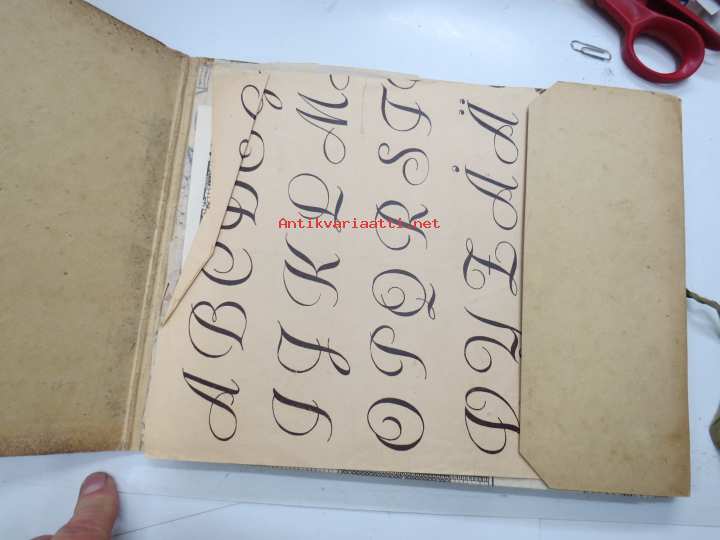 A B C D E G
I J K L M
O P Q R S T
U Y Z Å Ä
Antikvariaatti.net